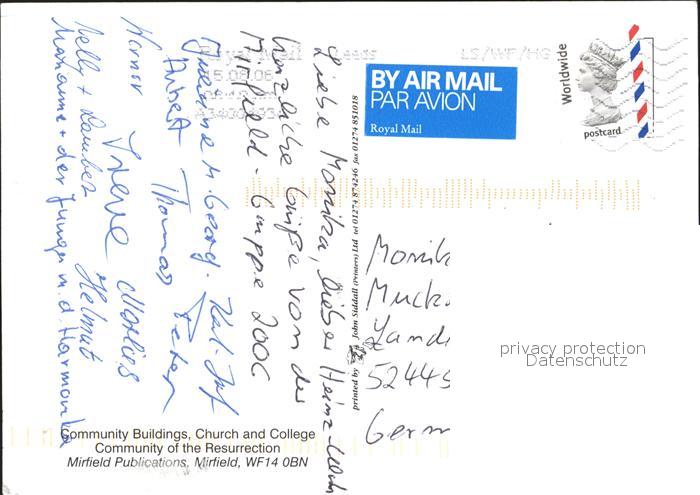 Liebe Monika, lieber Heinz-
herzliche Grüße von der
Mirfield-Gruppe 2006
Karl-Josef
M. Georg. Peter
Thomas
Werner Irene Marlies
Nelly + Helmut
Marianne + der Junge m. d. Harmonika
Royal Mail
15.08.06
LS/WF/HG
BY AIR MAIL
PAR AVION
Royal Mail
Worldwide
postcard
printed by John Siddall (Printers) Ltd tel 01274 fax 01274 851018
Monik
Muck
Land
52445
Germ
privacy protection
Datenschutz
Community Buildings, Church and College
Community of the Resurrection
Mirfield Publications, Mirfield, WF14 0BN